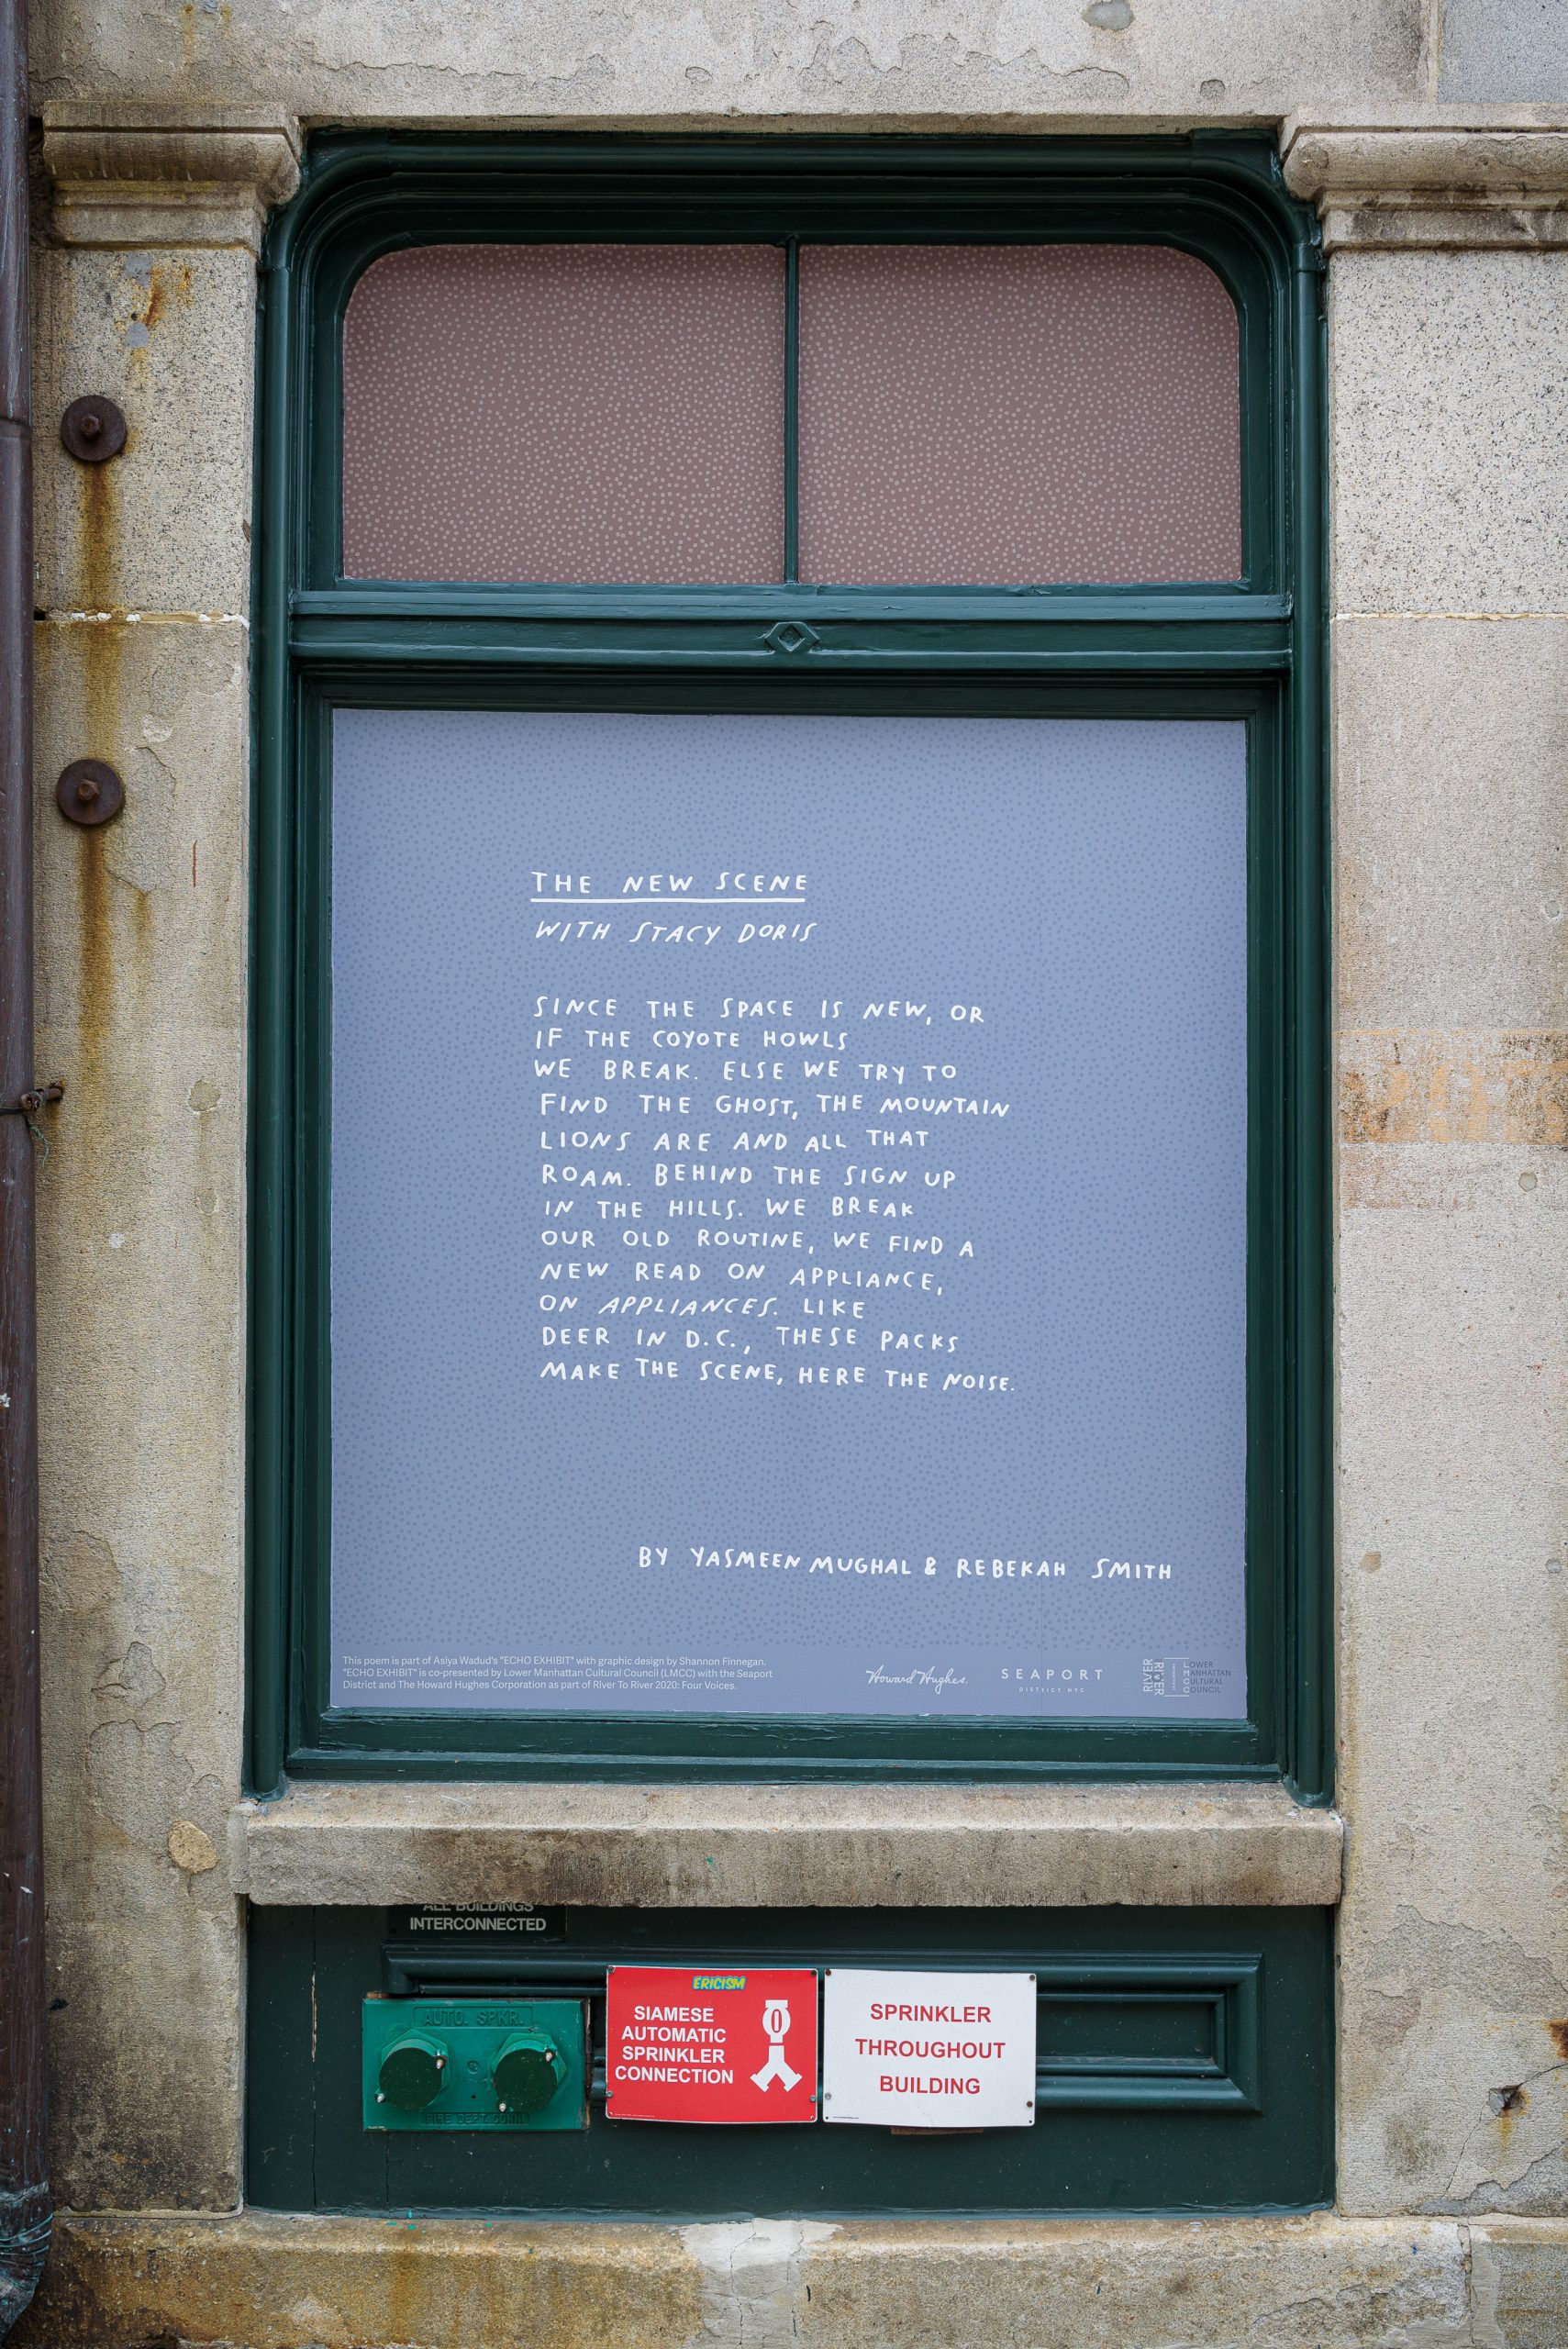 THE NEW SCENE
WITH STACY DORIS
SINCE THE SPACE IS NEW, OR
IF THE COYOTE HOWLS
WE BREAK. ELSE WE TRY TO
FIND THE GHOST, THE MOUNTAIN
LIONS ARE AND ALL THAT
ROAM. BEHIND THE SIGN UP
IN THE HILLS. WE BREAK
OUR OLD ROUTINE, WE FIND A
NEW READ ON APPLIANCE,
ON APPLIANCES. LIKE
DEER IN D.C., THESE PACKS
MAKE THE SCENE, HERE THE NOISE.
BY YASMEEN MUGHAL & REBEKAH SMITH
This poem is part of Asiya Wadud's "ECHO EXHIBIT" with graphic design by Shannon Finnegan.
"ECHO EXHIBIT" is co-presented by Lower Manhattan Cultural Council (LMCC) with the Seaport
District and The Howard Hughes Corporation as part of River To River 2020: Four Voices.
Howard Hughes.
SEAPORT
DISTRICT NYC
RIVER
RIVER
LMCC
LOWER
MANHATTAN
CULTURAL
COUNCIL
ALL BUILDINGS
INTERCONNECTED
AUTO. SPKR.
FIRE DEPT. CONN.
ERICISM
SIAMESE
AUTOMATIC
SPRINKLER
CONNECTION
SPRINKLER
THROUGHOUT
BUILDING